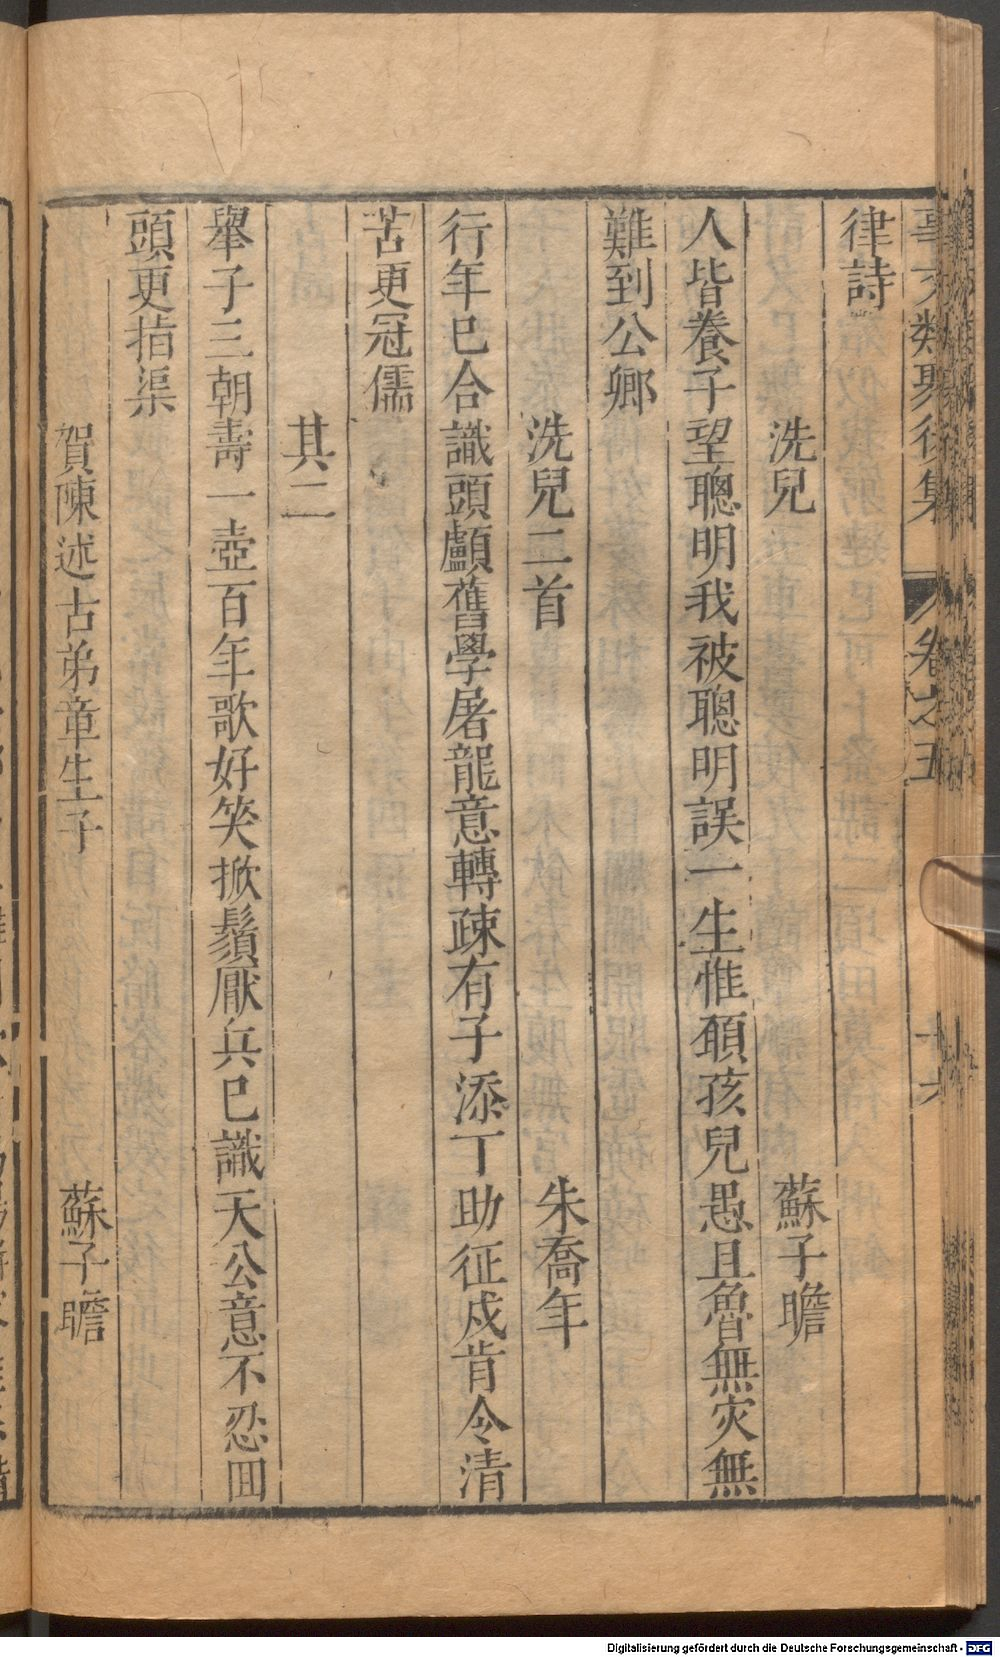 事文類聚後集 卷之五 十六
律詩
洗兒 蘇子瞻
人皆養子望聰明我被聰明誤一生惟願孩兒愚且魯無灾無
難到公卿
洗兒二首 朱喬年
行年已合識頭顱舊學屠龍意轉疎有子添丁助征戍肯令清
苦更冠儒
其二
舉子三朝壽一壺百年歌好笑掀鬚厭兵已識天公意不忍囬
頭更指渠
賀陳述古弟章生子 蘇子瞻
Digitalisierung gefördert durch die Deutsche Forschungsgemeinschaft - DFG